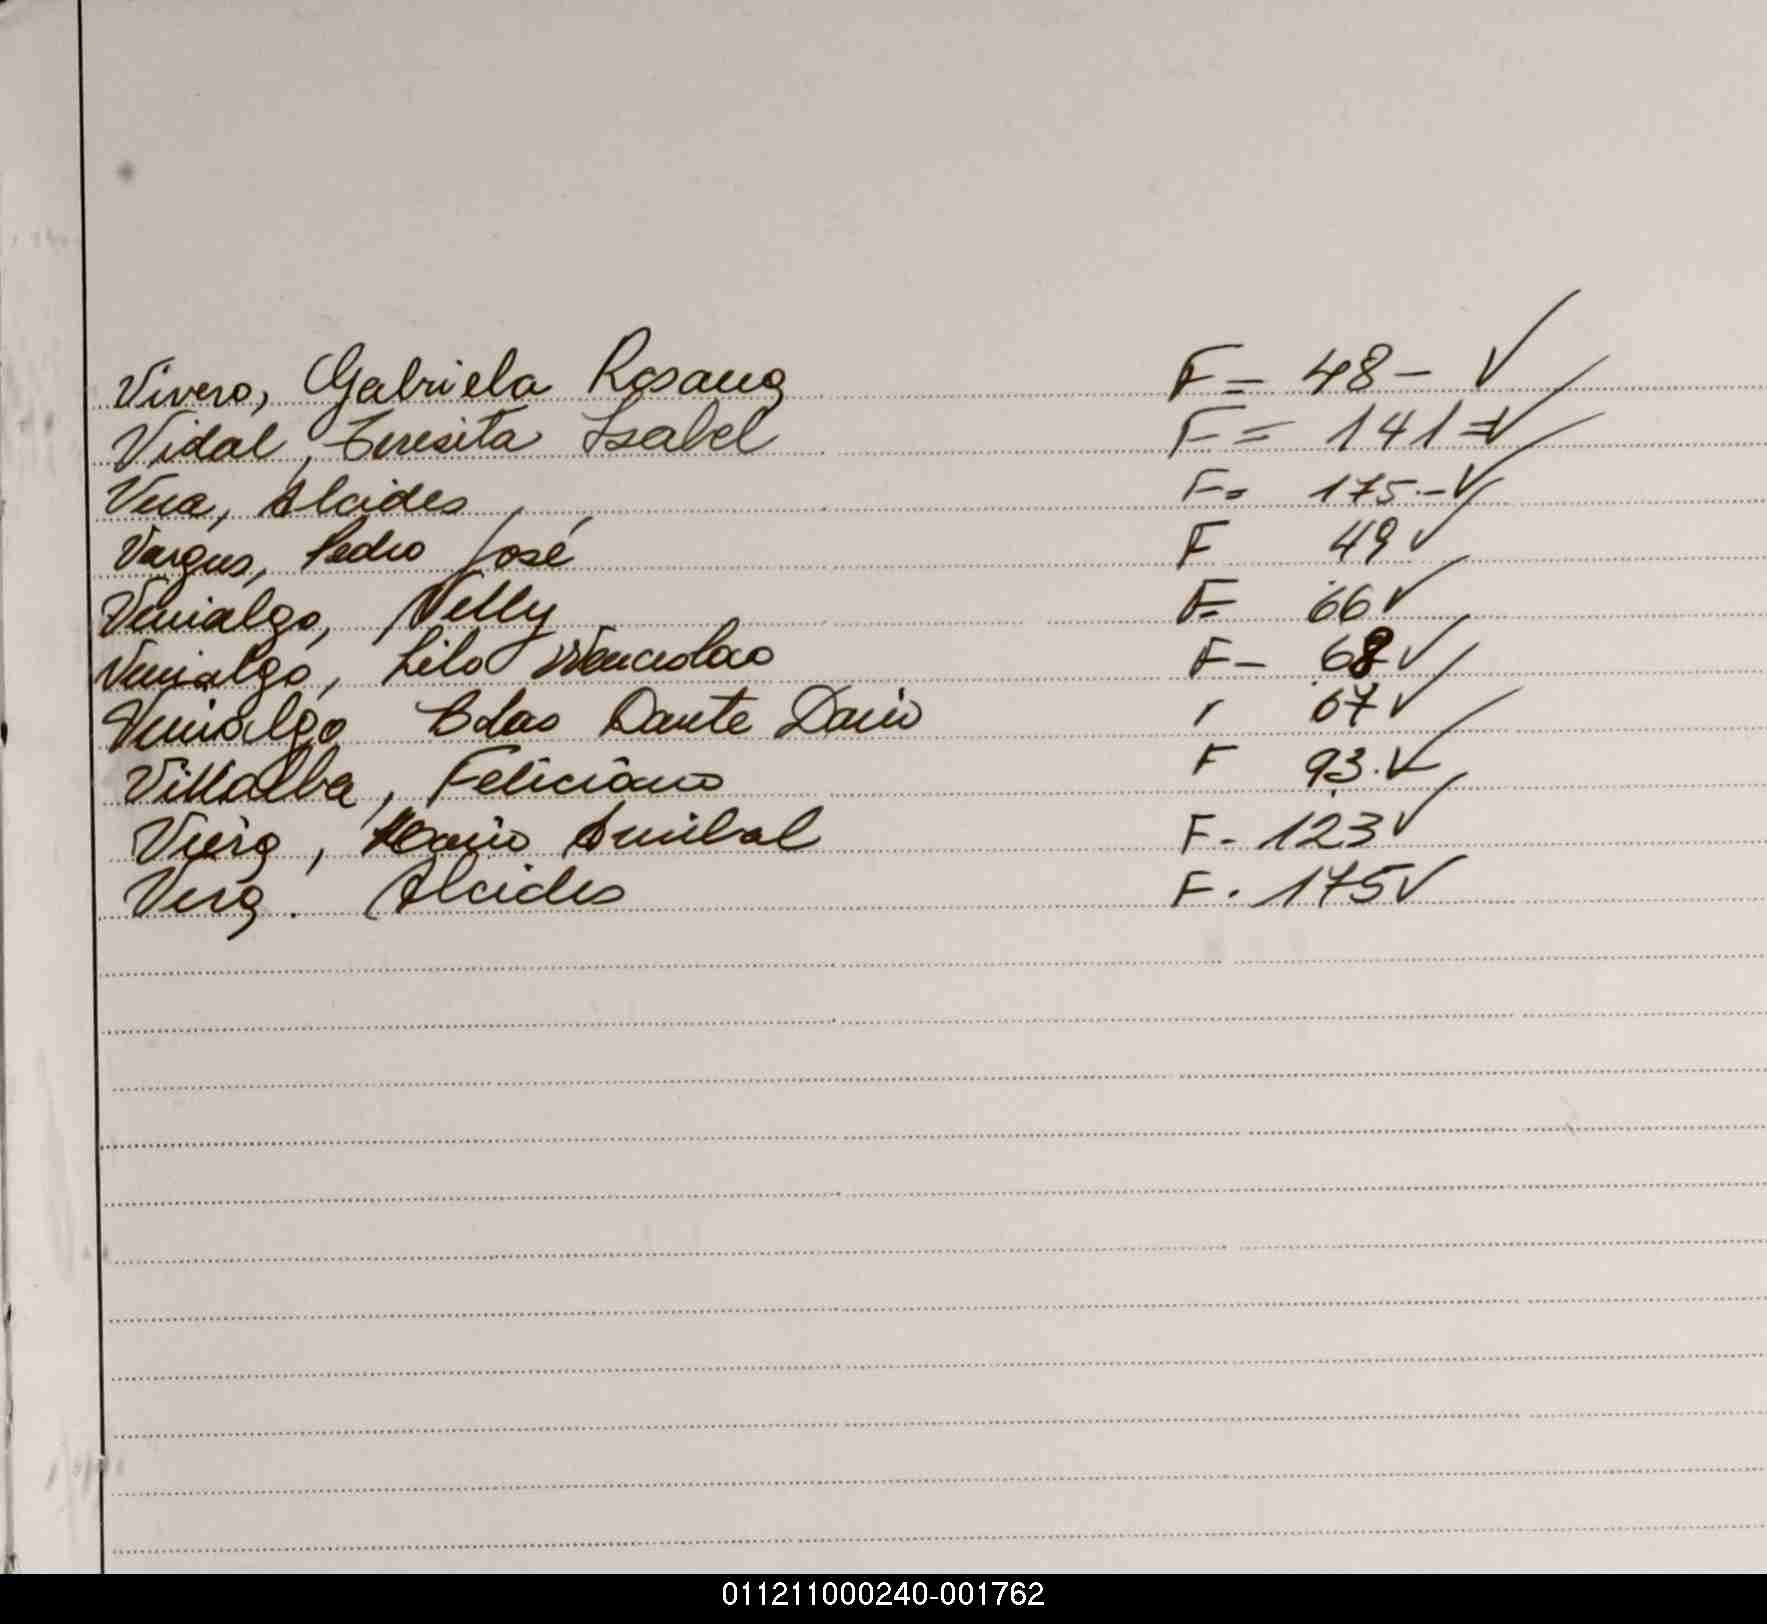 Vivero, Gabriela Rosana F= 48- ✓
Vidal, Teresita Isabel F= 141= ✓
Vera, Alcides F= 175.- ✓
Vargas, Pedro José F 49 ✓
Venialgo, Nelly F= 66 ✓
Venialgo, Lilo Wenceslao F- 68 ✓
Venialgo Blas Dante Dario 67 ✓
Villalba, Feliciano F 93. ✓
Viera, Mario Anibal F- 123 ✓
Vera. Alcides F. 175 ✓
011211000240-001762